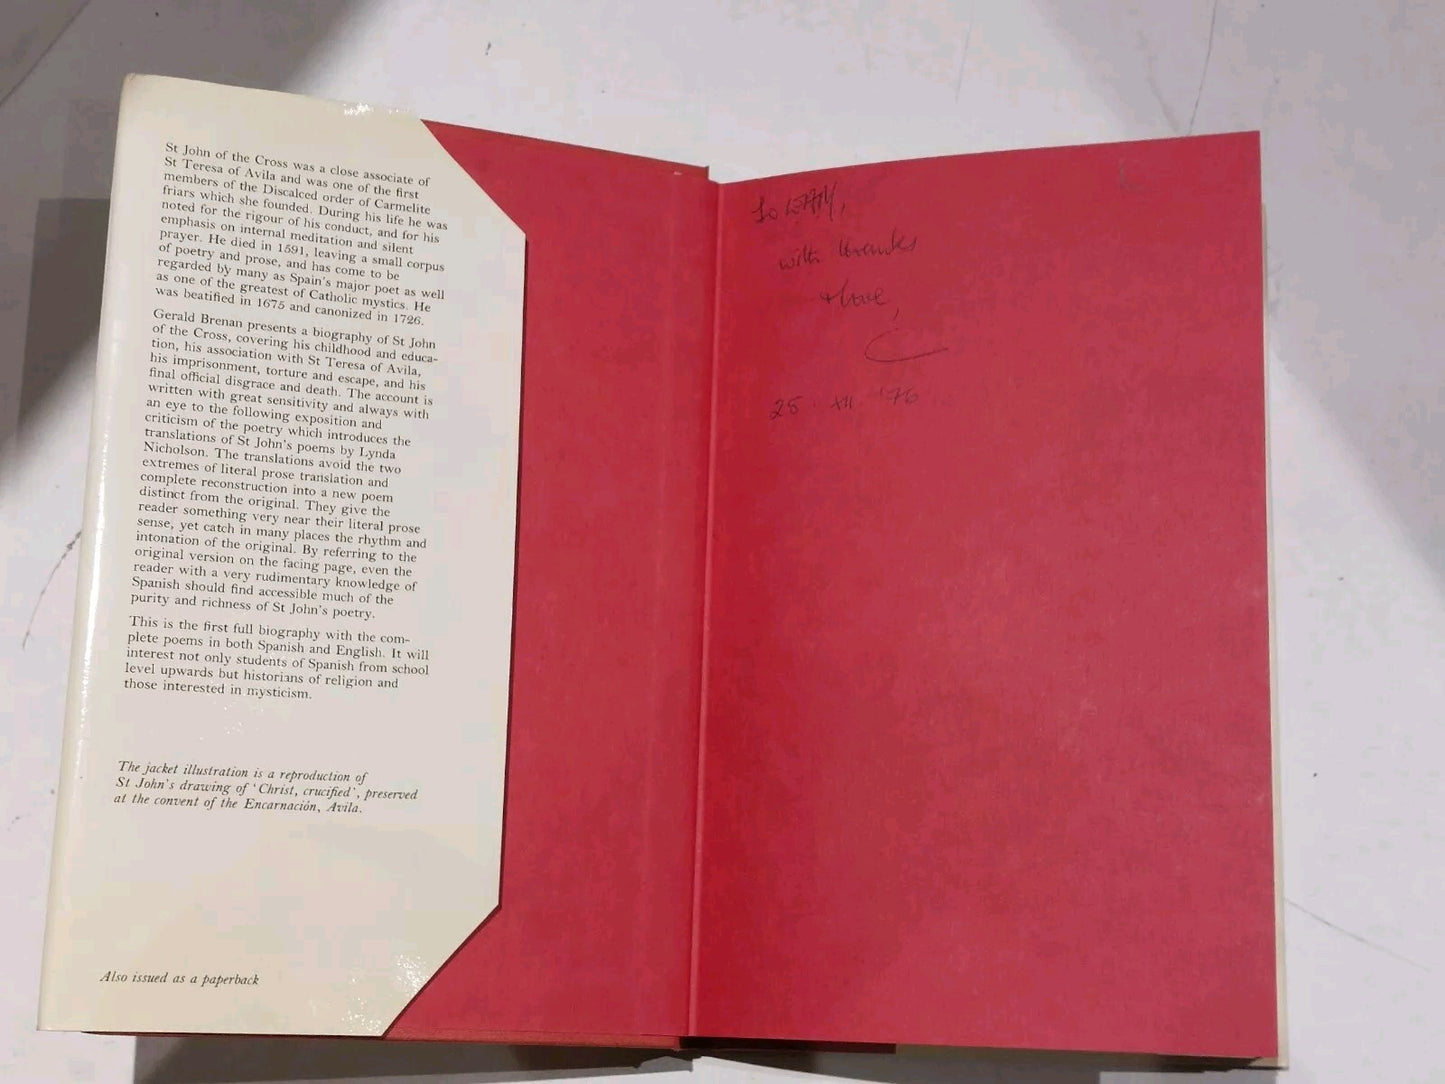 St John of the Cross was a close associate of
St Teresa of Avila and was one of the first
members of the Discalced order of Carmelite
friars which she founded. During his life he was
noted for the rigour of his conduct, and for his
emphasis on internal meditation and silent
prayer. He died in 1591, leaving a small corpus
of poetry and prose, and has come to be
regarded by many as Spain's major poet as well
as one of the greatest of Catholic mystics. He
was beatified in 1675 and canonized in 1726.
Gerald Brenan presents a biography of St John
of the Cross, covering his childhood and educa-
tion, his association with St Teresa of Avila,
his imprisonment, torture and escape, and his
final official disgrace and death. The account is
written with great sensitivity and always with
an eye to the following exposition and
criticism of the poetry which introduces the
translations of St John's poems by Lynda
Nicholson. The translations avoid the two
extremes of literal prose translation and
complete reconstruction into a new poem
distinct from the original. They give the
reader something very near their literal prose
sense, yet catch in many places the rhythm and
intonation of the original. By referring to the
original version on the facing page, even the
reader with a very rudimentary knowledge of
Spanish should find accessible much of the
purity and richness of St John's poetry.
This is the first full biography with the com-
plete poems in both Spanish and English. It will
interest not only students of Spanish from school
level upwards but historians of religion and
those interested in mysticism.
The jacket illustration is a reproduction of
St John's drawing of 'Christ, crucified', preserved
at the convent of the Encarnación, Avila.
Also issued as a paperback
To
with thanks
+ love,
25 · XII '76